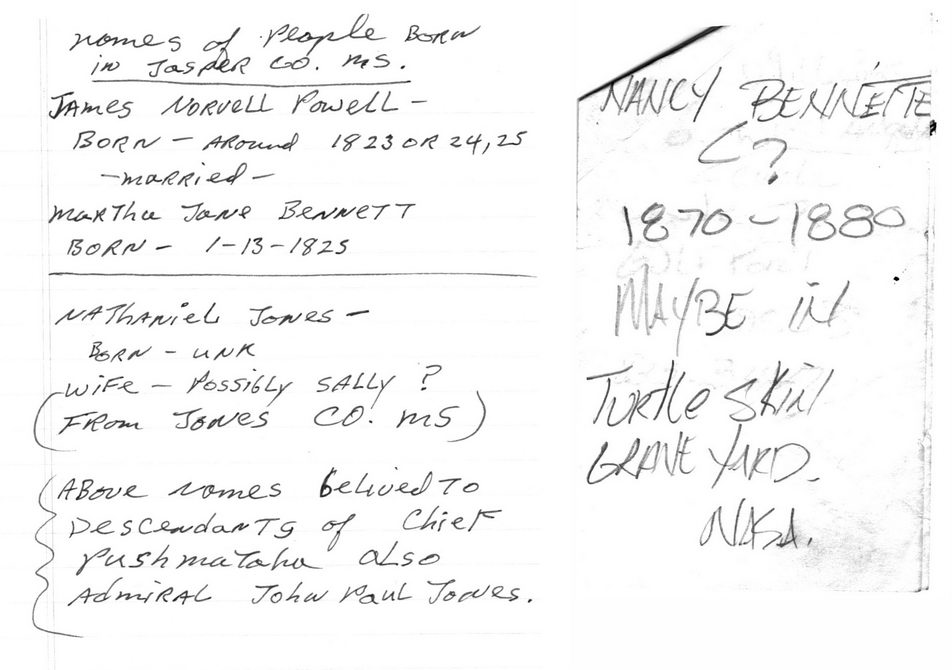 names of People BORN
in JASPER CO. MS.
JAMES NORVELL POWELL –
BORN – AROUND 1823 OR 24, 25
– MARRIED –
MARTHA JANE BENNETT
BORN – 1-13-1825
NATHANIEL JONES –
BORN – UNK
WIFE – POSSIBLY SALLY ?
(FROM JONES CO. MS)
ABOVE NAMES belived TO
DESCENDANTS of CHIEF
PUSHMATAHA ALSO
ADMIRAL JOHN PAUL JONES.
NANCY BENNETTE
?
1870 – 1880
MAYBE IN
TURTLE SKIN
GRAVE YARD.
NASA.